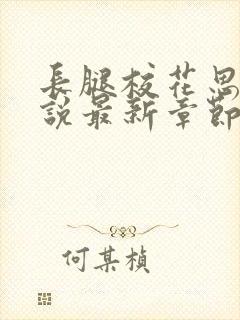 長腿校花思
說最新章節
何某楨